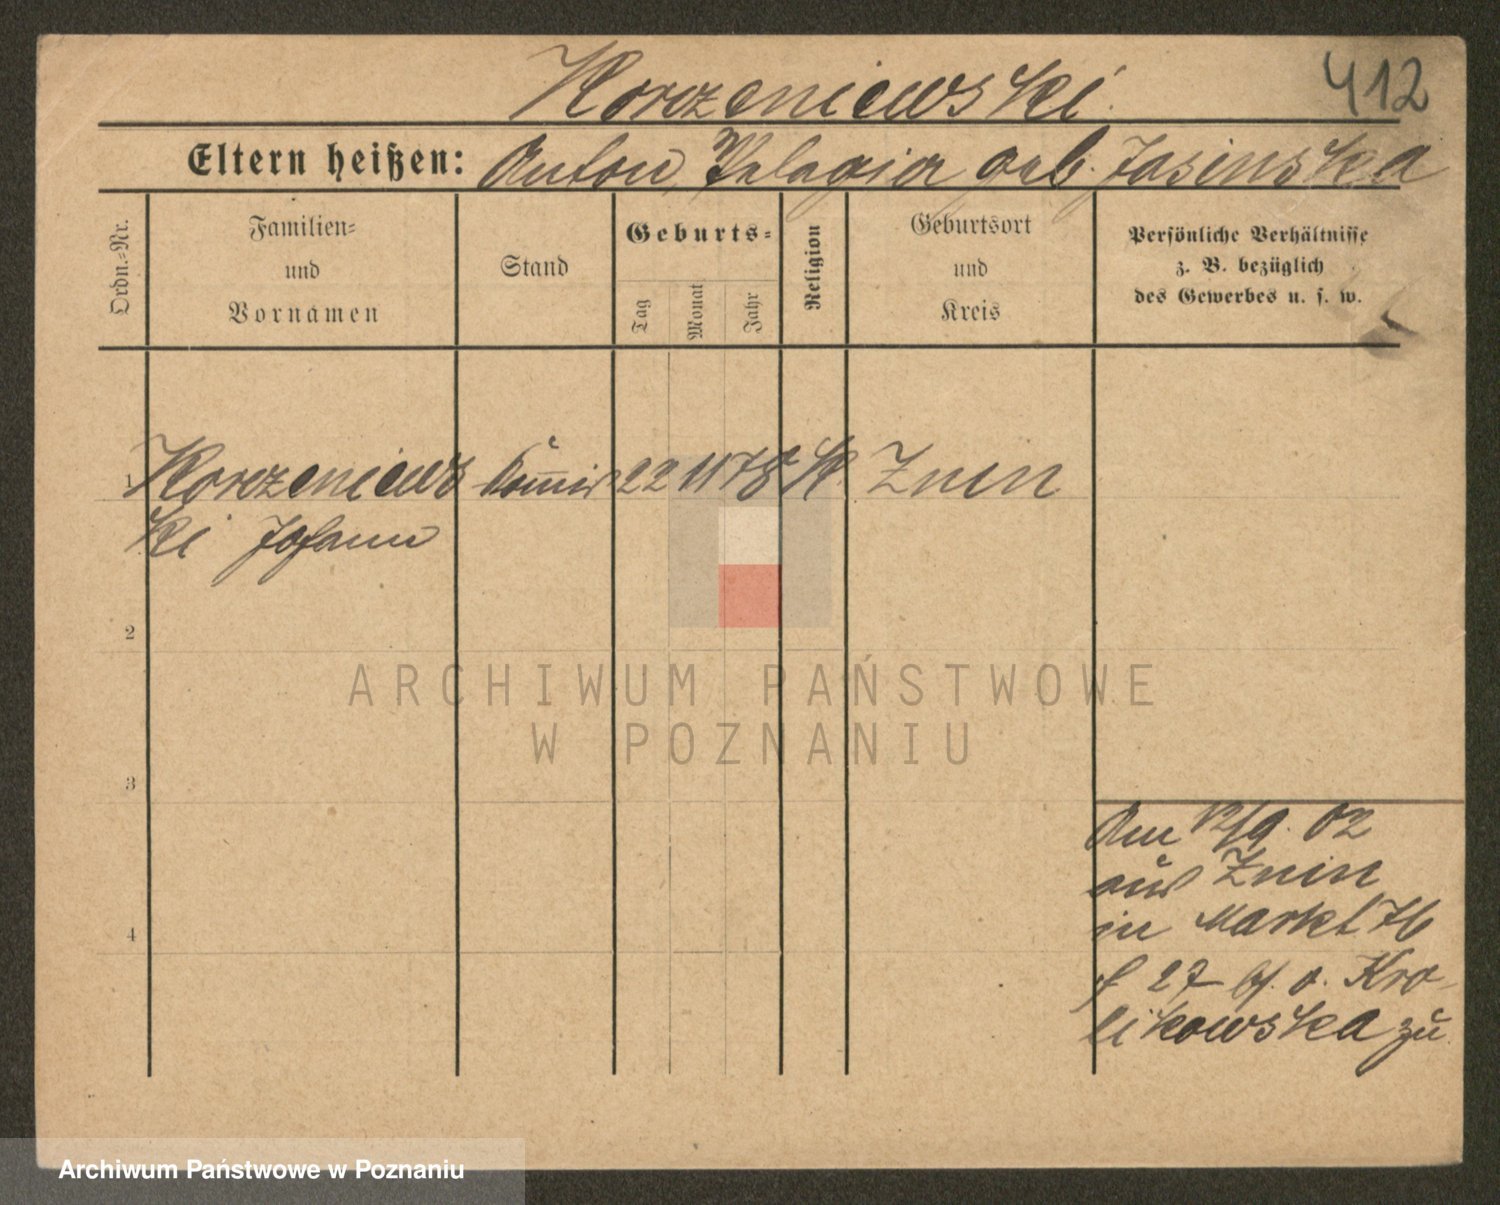 Korzeniewski
412
Eltern heißen: Anton, Pelagia geb. Jasinska
Ordn.-Nr.
Familien-
und
Vornamen
Stand
Geburts-
Tag
Monat
Jahr
Religion
Geburtsort
und
Kreis
Persönliche Verhältnisse
z. B. bezüglich
des Gewerbes u. s. w.
1 Korzeniews Commis 22 11 78 K. Znin
ki Johann
2
3
4
Am 12/9. 02
aus Znin
in Markt 76
27 b/. o. Kro-
likowska zu
ARCHIWUM PAŃSTWOWE
W POZNANIU
Archiwum Państwowe w Poznaniu